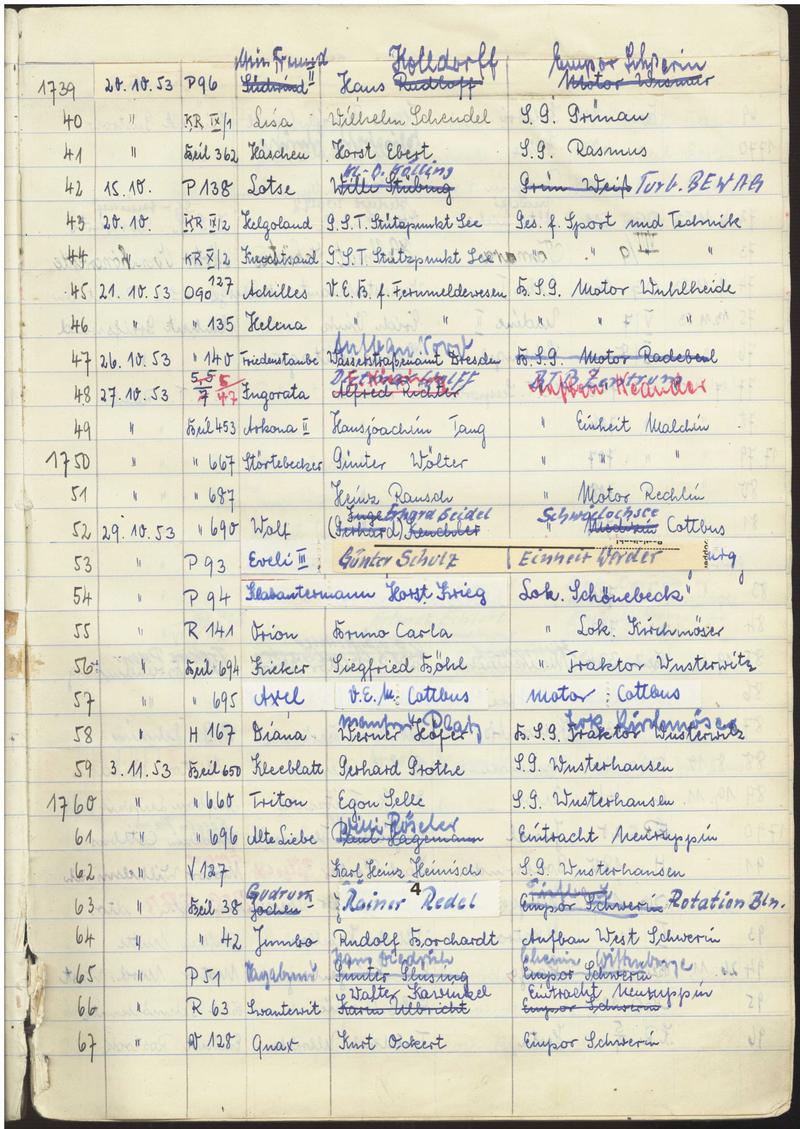 Mein Freund II Holldorff Empor Schwerin
1739 20.10.53 P96 Südwind Hans Rudloff Motor Wismar
40 " KR IX/1 Lisa Wilhelm Schendel S.G. Grünau
41 " Beil 362 Häschen Horst Ebert S.G. Rasmus
Kölling
42 15.10. P 138 Lotse Willi Stübing Grün Weiß Turb. BEWAG
43 20.10. KR IX/2 Helgoland G.S.T. Stützpunkt See Ges. f. Sport und Technik
44 " KR X/2 Knechtsand G.S.T. Stützpunkt See " "
45 21.10.53 Ogo 127 Achilles V.E.B. f. Fernmeldewesen B.S.G. Motor Wuhlheide
46 " " 135 Helena " " " "
47 26.10.53 " 140 Friedenstaube Wasserstraßenamt Dresden B.S.G. Motor Radebeul
48 27.10.53 Ingorata Alfred Richter Aufbau
49 " Beil 453 Arkona II Hansjoachim Tang " Einheit Malchin
1750 " " 667 Störtebecker Günter Wölter " " "
51 " " 687 Heinz Rausch " Motor Rechlin
Erhard Beidel Schwielochsee
52 29.10.53 " 690 Wolf (Gerhard) Medizin Cottbus
53 " P 93 Eveli III Günter Schulz Einheit Werder
54 " P 94 Klabautermann Horst Krieg Lok. Schönebeck "
55 " R 141 Orion Bruno Carla " Lok. Kirchmöser
56 " Beil 694 Kieker Siegfried Böhl " Traktor Wusterwitz
57 " " 695 Axel V.E.M. Cottbus Motor Cottbus
Manfred Platz Lok Kirchmöser
58 " H 167 Diana Werner Höfer B.S.G. Traktor Wusterwitz
59 3.11.53 Beil 650 Kleeblatt Gerhard Grothe S.G. Wusterhausen
1760 " " 660 Triton Egon Selle S.G. Wusterhausen
Willi Röseler
61 " " 696 Alte Liebe Paul Hagemann Eintracht Neuruppin
62 " V 127 Karl Heinz Heinisch S.G. Wusterhausen
Gudrun 4
63 " Beil 38 Jochen I Rainer Redel Empor Schwerin Rotation Bln.
64 " " 42 Jumbo Rudolf Borchardt Aufbau West Schwerin
Hans Diedrich Chemie Wittenberge
65 " P 51 Vagabund Günter Slusing Empor Schwerin
Walter Kawinkel Eintracht Neuruppin
66 " R 63 Swantewit Karin Ulbricht Empor Schwerin
67 " V 128 Quax Kurt Ockert Empor Schwerin